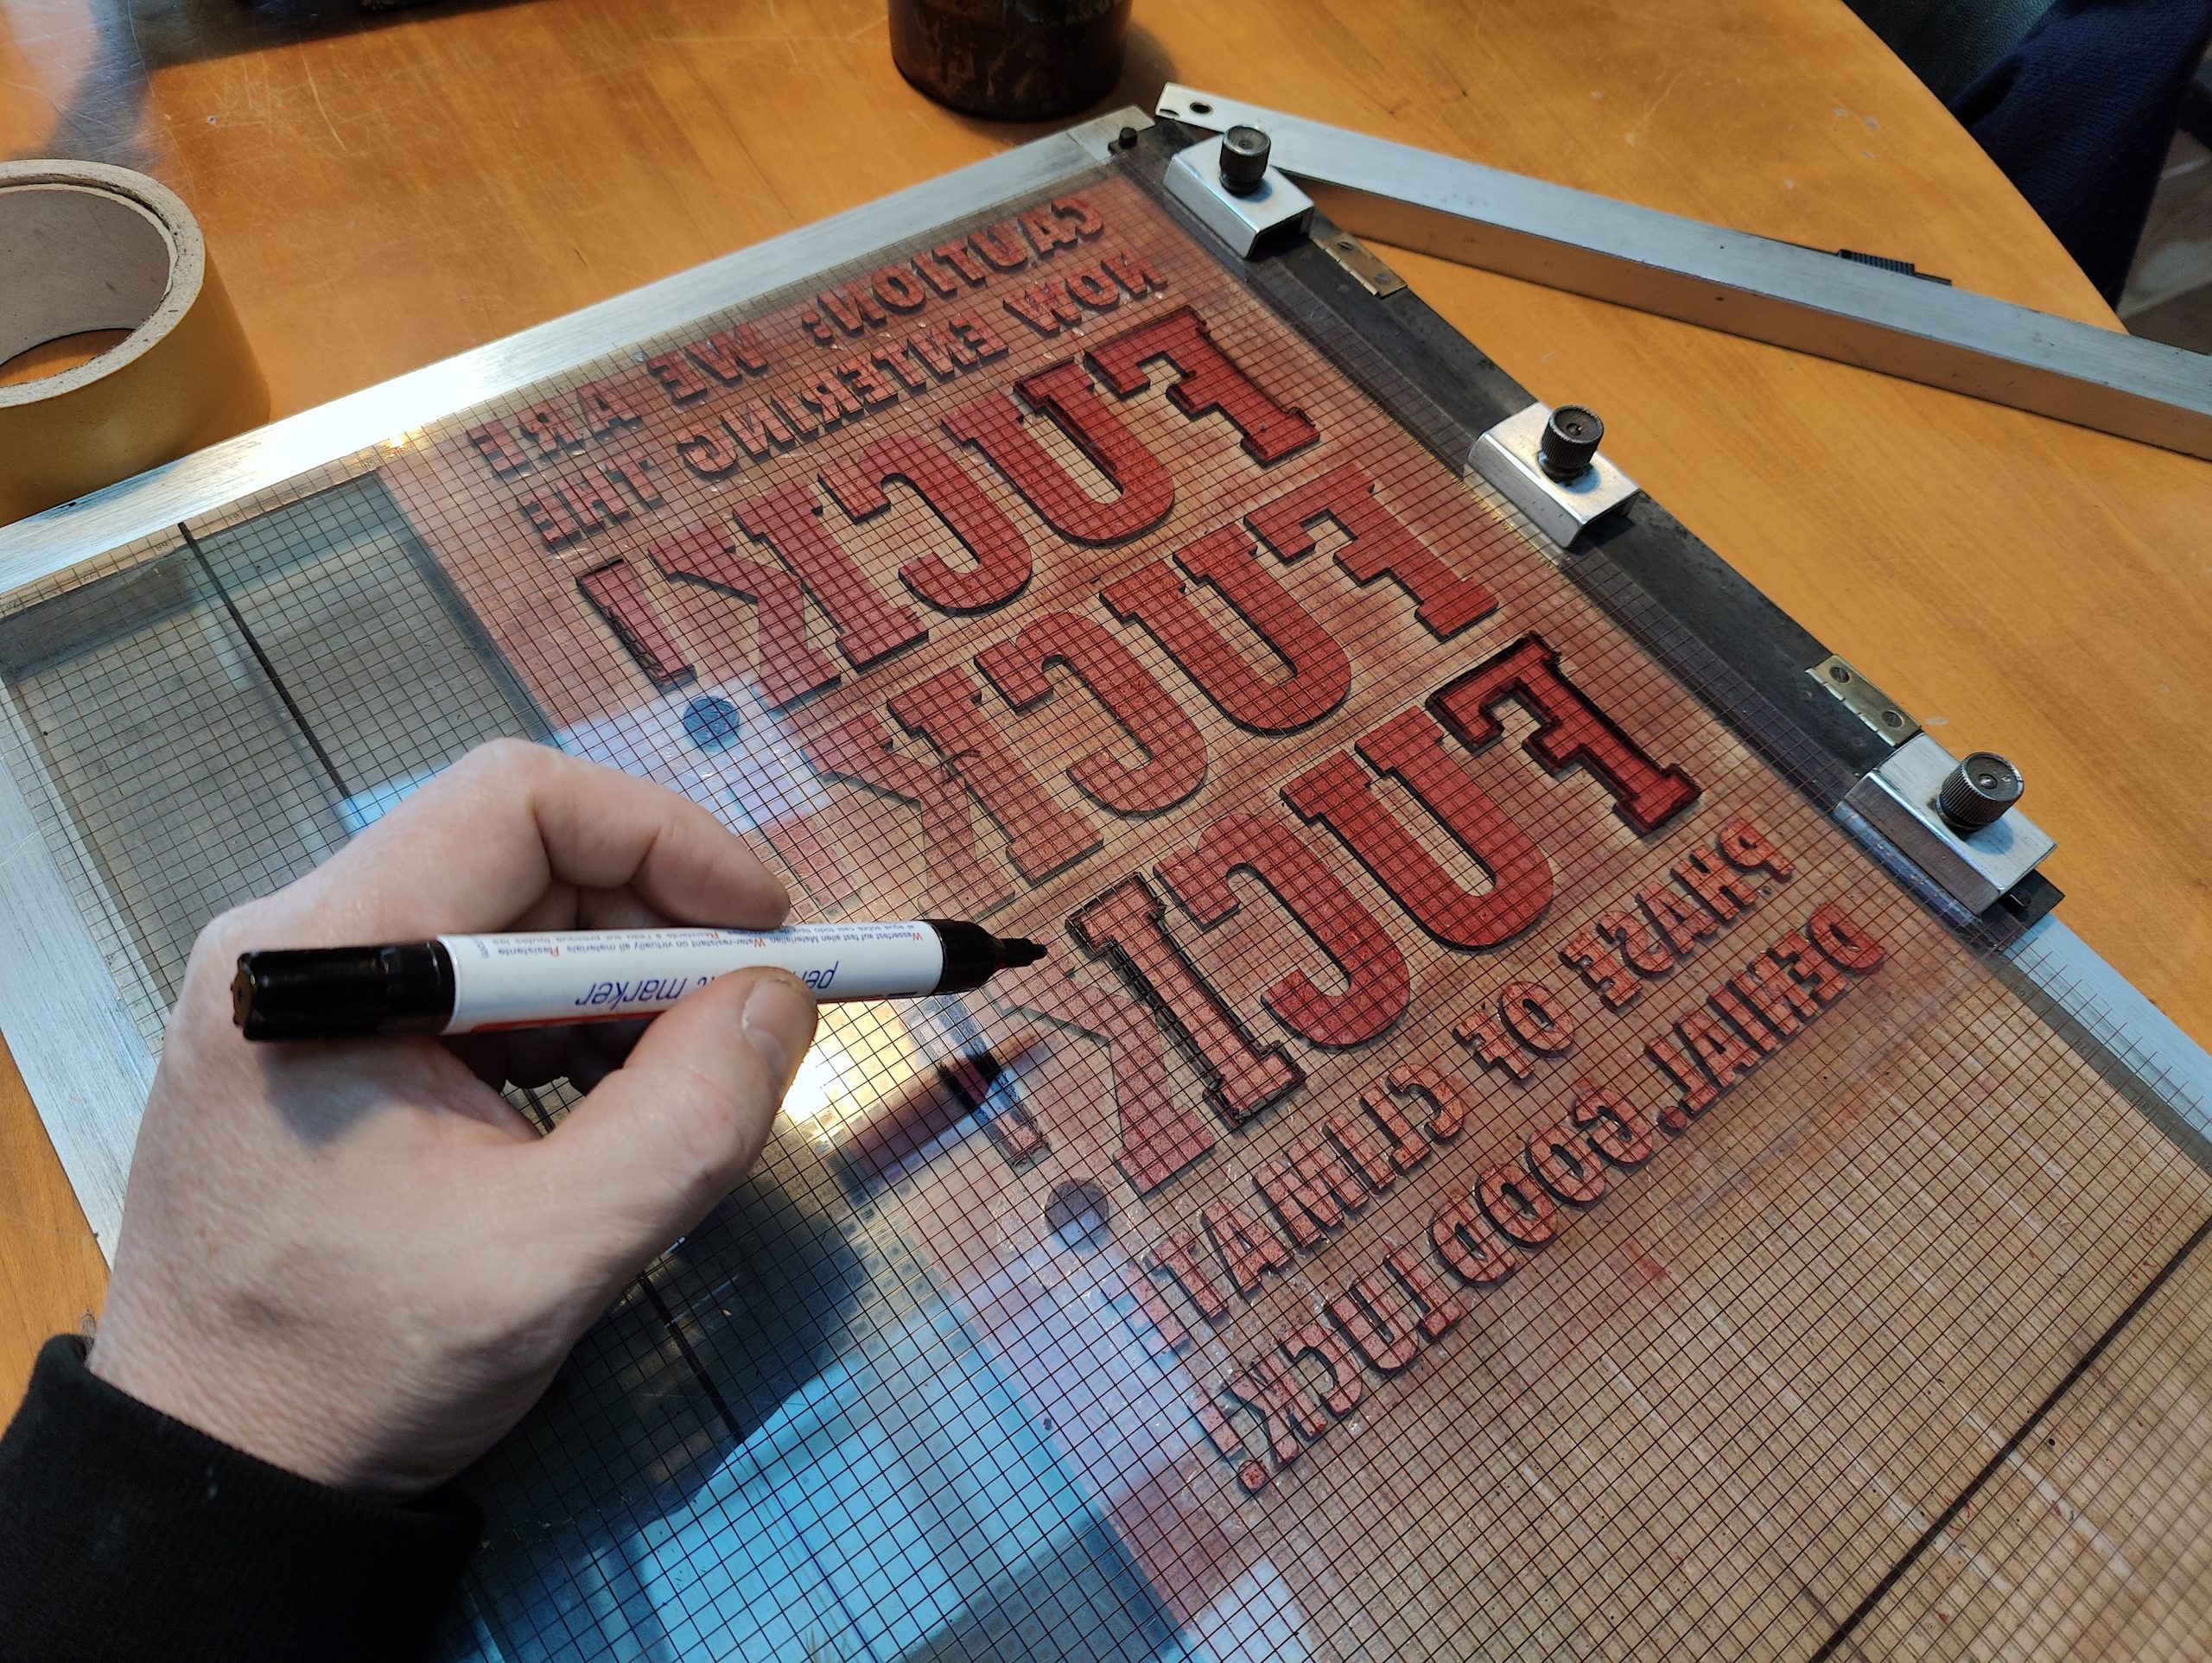 CAUTION: WE ARE
NOW ENTERING THE
FUCK!
FUCK!
FUCK!
PHASE OF CLIMATE
DENIAL. GOOD LUCK!
marker
Wasserfest auf fast allen Materialien Water-resistant on virtually all materials